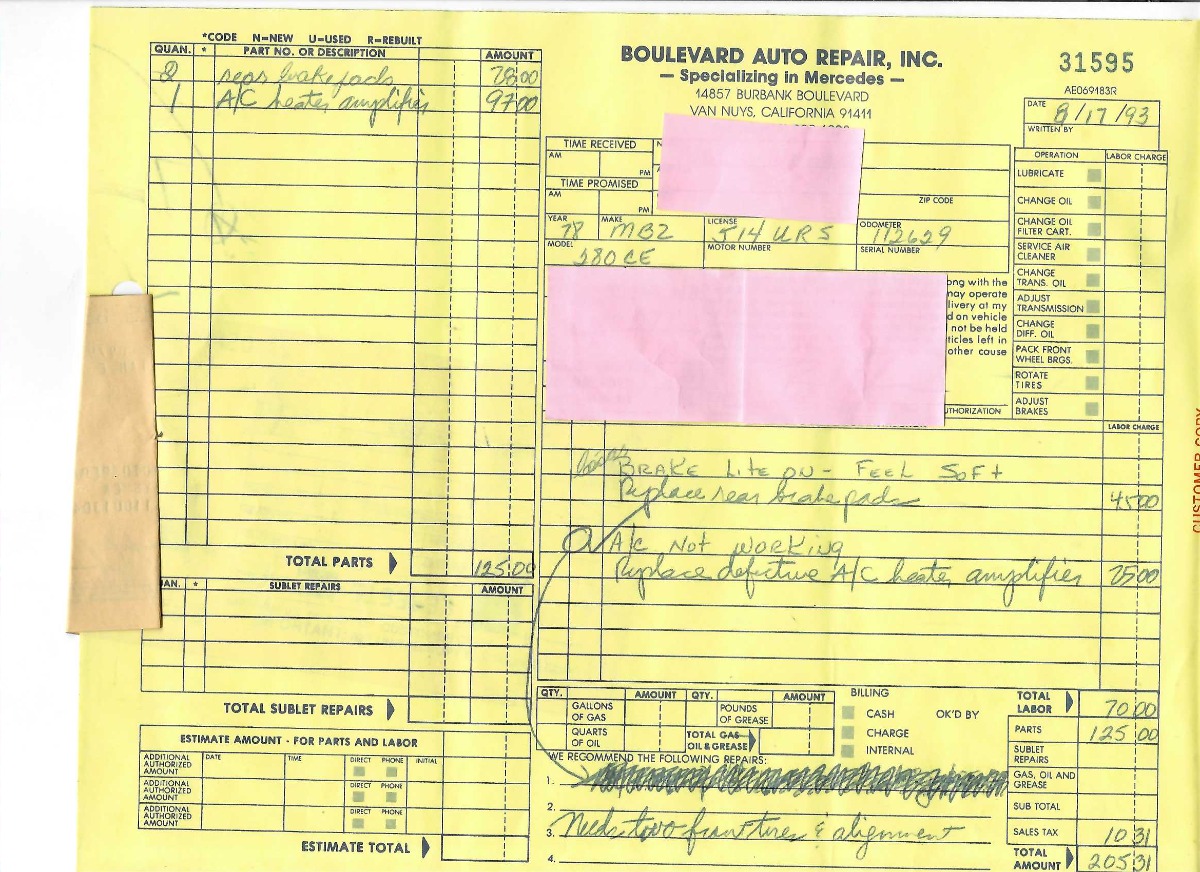 *CODE N=NEW U=USED R=REBUILT
QUAN. * PART NO. OR DESCRIPTION AMOUNT
2 rear brake pads 28 00
1 A/C heater amplifier 97 00
TOTAL PARTS 125.00
QUAN. * SUBLET REPAIRS AMOUNT
TOTAL SUBLET REPAIRS
ESTIMATE AMOUNT - FOR PARTS AND LABOR
ADDITIONAL AUTHORIZED AMOUNT DATE TIME DIRECT PHONE INITIAL
ADDITIONAL AUTHORIZED AMOUNT DIRECT PHONE
ADDITIONAL AUTHORIZED AMOUNT DIRECT PHONE
ESTIMATE TOTAL
BOULEVARD AUTO REPAIR, INC.
— Specializing in Mercedes —
14857 BURBANK BOULEVARD
VAN NUYS, CALIFORNIA 91411
31595
AE069183R
DATE 8/17/93
WRITTEN BY
TIME RECEIVED
AM PM
TIME PROMISED
AM PM
ZIP CODE
YEAR 78 MAKE MBZ LICENSE 514 URS ODOMETER 112629
MODEL 280CE MOTOR NUMBER SERIAL NUMBER
ong with the
may operate
livery at my
d on vehicle
not be held
ticles left in
other cause
OPERATION LABOR CHARGE
LUBRICATE
CHANGE OIL
CHANGE OIL FILTER CART.
SERVICE AIR CLEANER
CHANGE TRANS. OIL
ADJUST TRANSMISSION
CHANGE DIFF. OIL
PACK FRONT WHEEL BRGS.
ROTATE TIRES
ADJUST BRAKES
LABOR CHARGE
BRAKE LITE ON - FEEL SOFT
Replace rear brake pads 45 00
A/C NOT WORKING
Replace defective A/C heater amplifier 25 00
QTY. AMOUNT QTY. AMOUNT
GALLONS OF GAS POUNDS OF GREASE
QUARTS OF OIL TOTAL GAS OIL & GREASE
BILLING
CASH OK'D BY
CHARGE
INTERNAL
WE RECOMMEND THE FOLLOWING REPAIRS:
1.
2.
3. Needs two front tires & alignment
4.
TOTAL LABOR 70 00
PARTS 125 00
SUBLET REPAIRS
GAS, OIL AND GREASE
SUB TOTAL
SALES TAX 10 31
TOTAL AMOUNT 205 31
CUSTOMER COPY